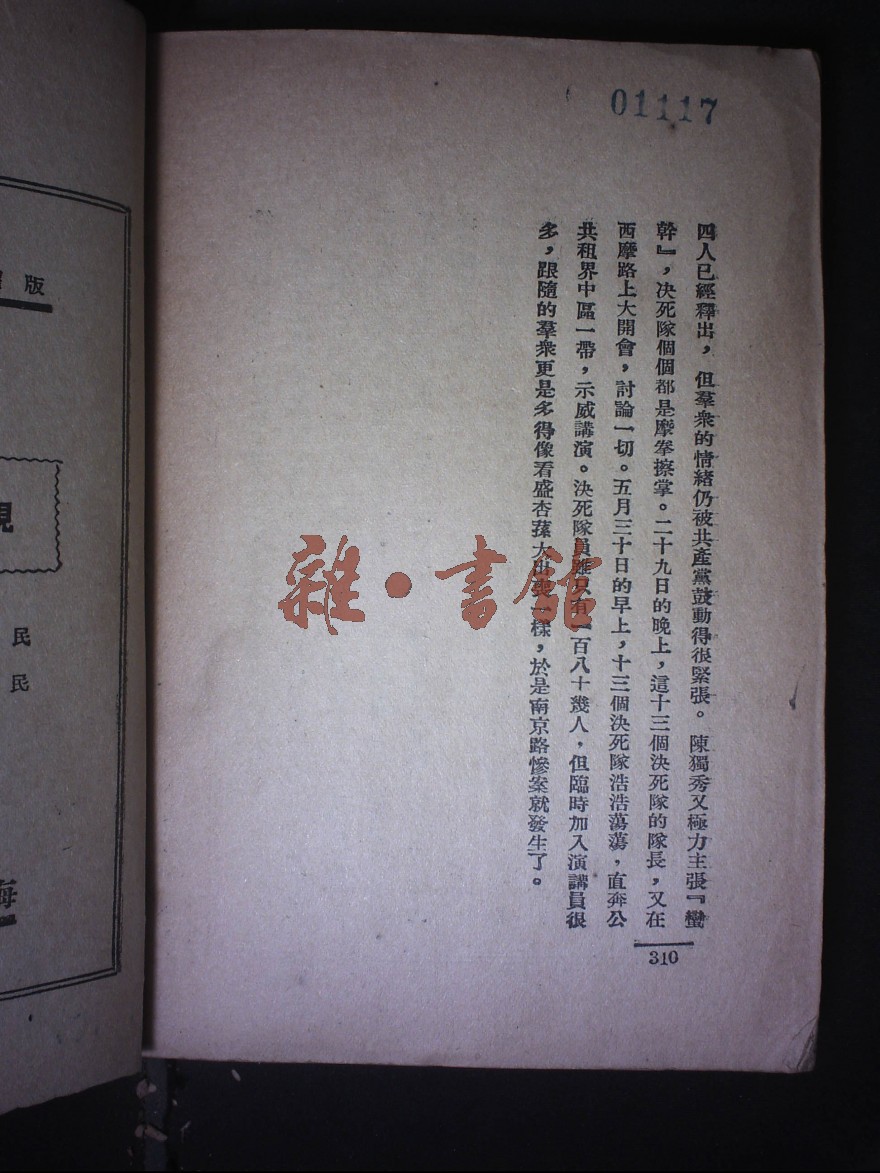 01117
四人已經釋出，但羣衆的情緖仍被共產黨鼓動得很緊張。陳獨秀又極力主張『蠻
幹』，决死隊個個都是摩拳擦掌。二十九日的晚上，這十三個決死隊的隊長，又在
西摩路上大開會，討論一切。五月三十日的早上，十三個決死隊浩浩蕩蕩，直奔公
共租界中區一帶，示威講演。決死隊員雖只有一百八十幾人，但臨時加入演講員很
多，跟隨的羣衆更是多得像看盛杏蓀大出喪一樣，於是南京路慘案就發生了。
310
雜·書館
版
民
民
海